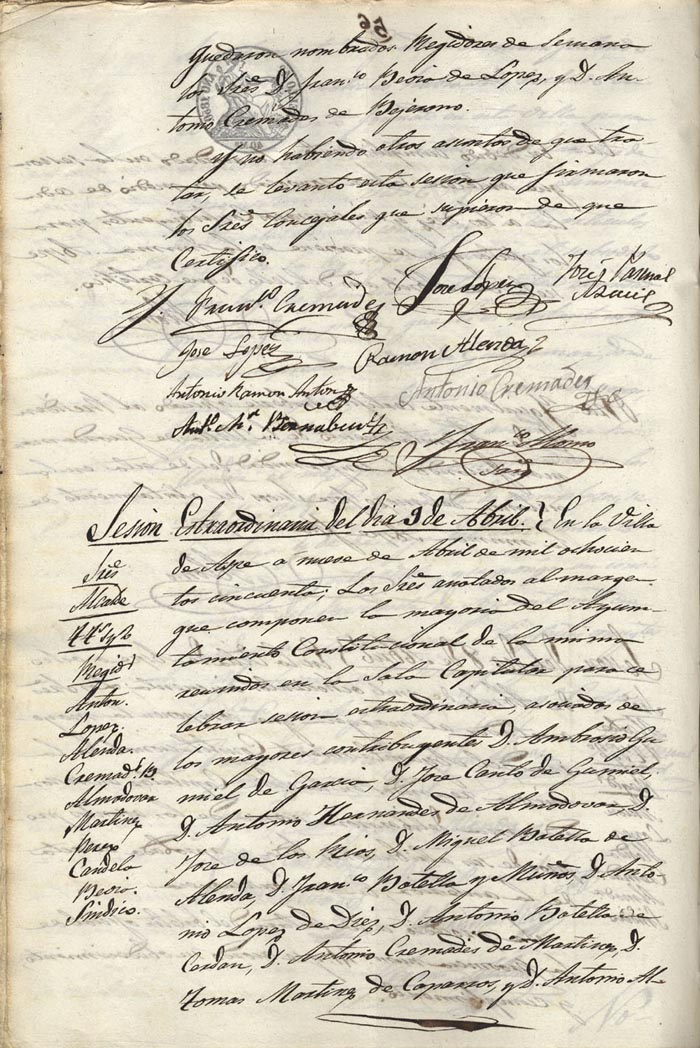 quedaron nombrados Regidores de Semana
los Sres. D. Franco. Beoia de Lopez, y D. An-
tonio Cremades de Bejerano.
Y no habiendo otros asuntos de que tra-
tar, se levanto esta sesion que firmaron
los Sres. Concejales que supieron de que
Certifico.
Cremades
Jose López
José Pasqual
Jose Lopez
Ramon Alenda
Antonio Ramon Anton
Antonio Cremades
Anto. Ma. Bernabeu
Franco. Alonso
Sesion Extraordinaria del dia 9 de Abril.
En la Villa
de Aspe a nueve de Abril de mil ochocien
tos cincuenta; Los Sres. anotados al margen
que componen la mayoria del Ayun-
tamiento Constitucional de la misma
reunidos en la Sala Capitular para ce
lebrar sesion extraordinaria, asociados de
los mayores contribuyentes D. Ambrosio Gu
miel de Garcia, D. Jose Canto de Gumiel,
D. Antonio Hernandez de Almodovar, D.
Jose de los Rios, D. Miguel Botella de
Alenda, D. Franco. Botella y Muños, D. Anto-
nio Lopez de Diez, D. Antonio Botella de
Cerdan, D. Antonio Cremades de Martinez, D.
Tomas Martinez de Caparros, y D. Antonio Al-
Sres.
Alcalde
Regids.
Anton.
Lopez
Alenda.
Cremads. B
Almodovar
Martinez
Perez
Candela
Beoia.
Sindico.